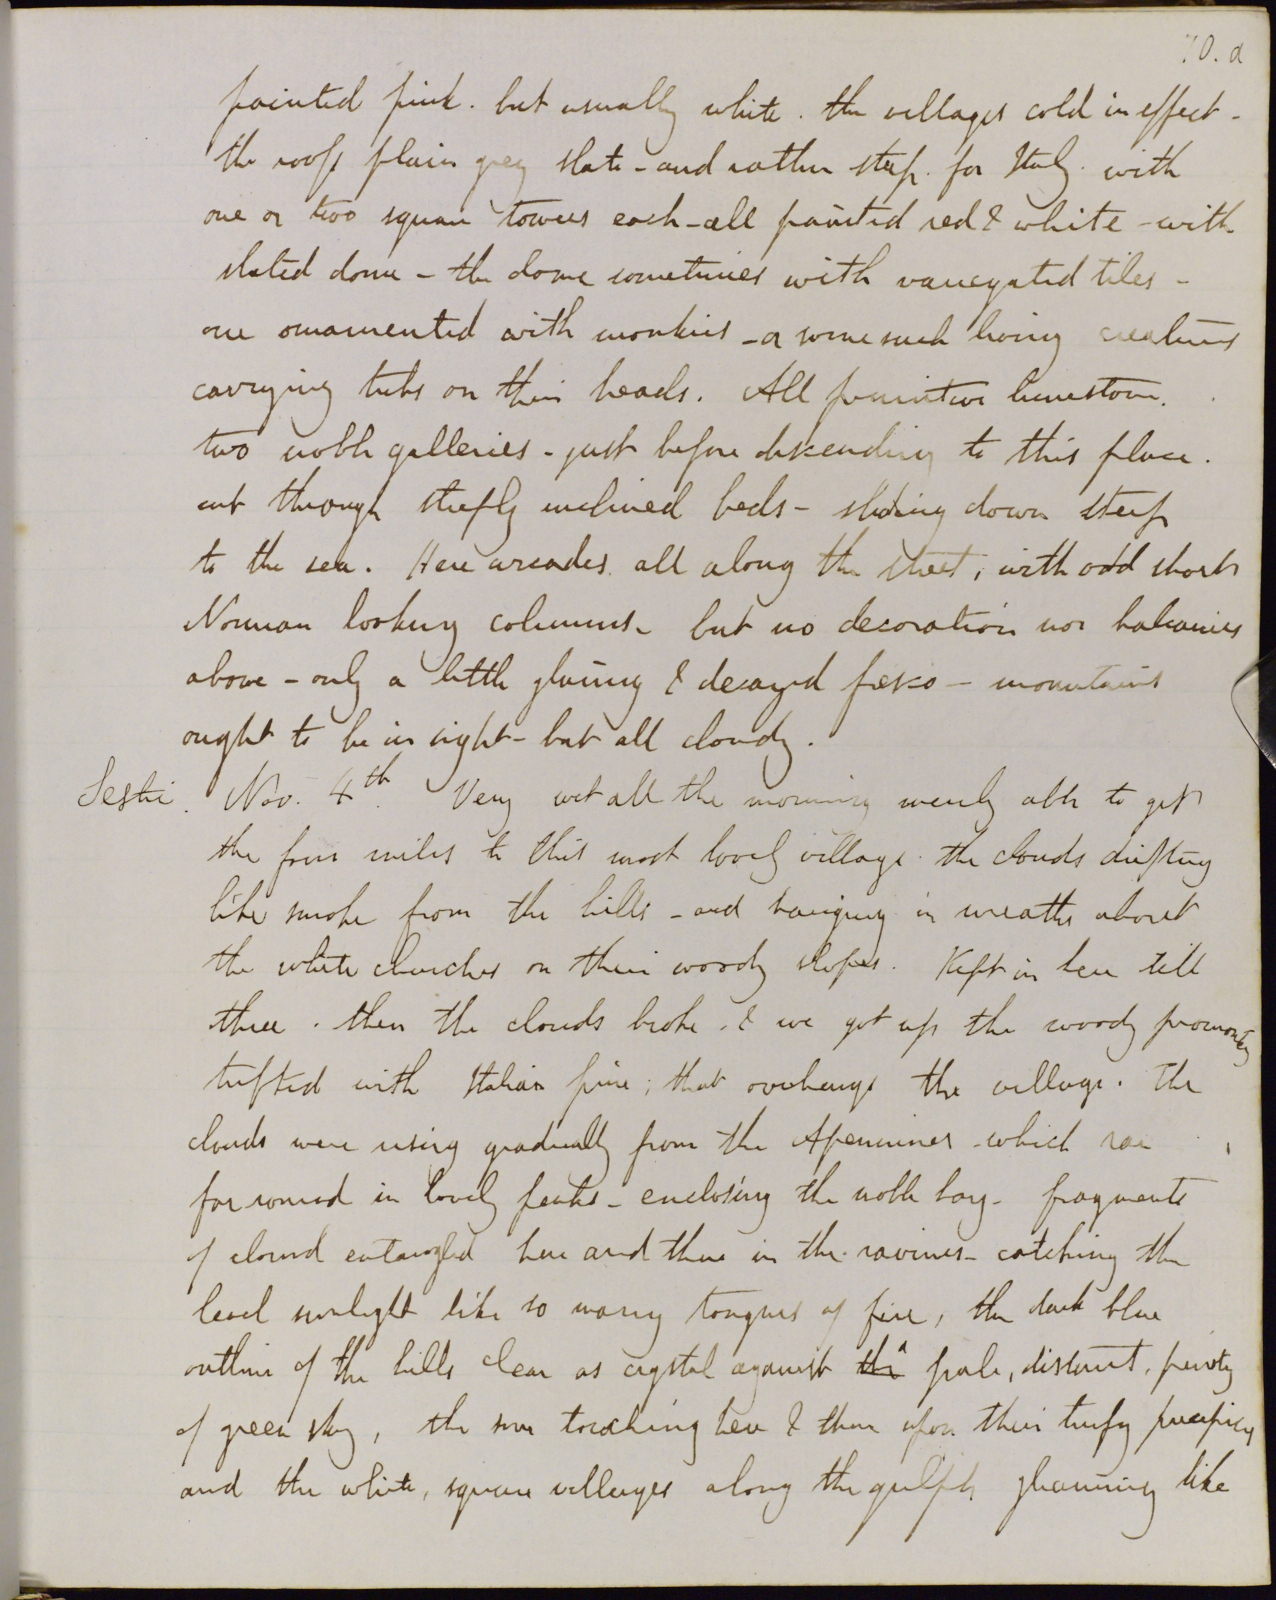 70. a
painted pink. but usually white. the villages cold in effect -
the roofs plain grey slate - and rather steep. for Italy. with
one or two square towers each - all painted red & white - with
slated dome - the dome sometimes with variegated tiles -
one ornamented with monkies - or some such living creatures
carrying tubs on their heads. All primitive limestone.
two noble galleries - just before descending to this place.
cut through steeply inclined beds - sliding down steep
to the sea. Here arcades all along the street, with odd short
Norman looking columns - but no decoration nor balconies
above - only a little glaring & decayed fresco - mountains
ought to be in sight - but all cloudy.
Sestri. Nov. 4th. Very wet all the morning merely able to get
the four miles to this most lovely village. the clouds drifting
like smoke from the hills - and hanging in wreaths about
the white churches on their woody slopes. Kept in here till
three. then the clouds broke. & we got up the woody promontory
tufted with Italian pine, that overhangs the village. The
clouds were rising gradually from the Apennines - which rose
far round in lovely peaks - enclosing the noble bay - fragments
of cloud entangled here and there in the ravines - catching the
level sunlight like so many tongues of fire, the dark blue
outline of the hills clear as crystal against the a pale, distant, purity
of green sky, the sun touching here & there upon their turfy precipices
and the white, square villages along the gulph gleaming like